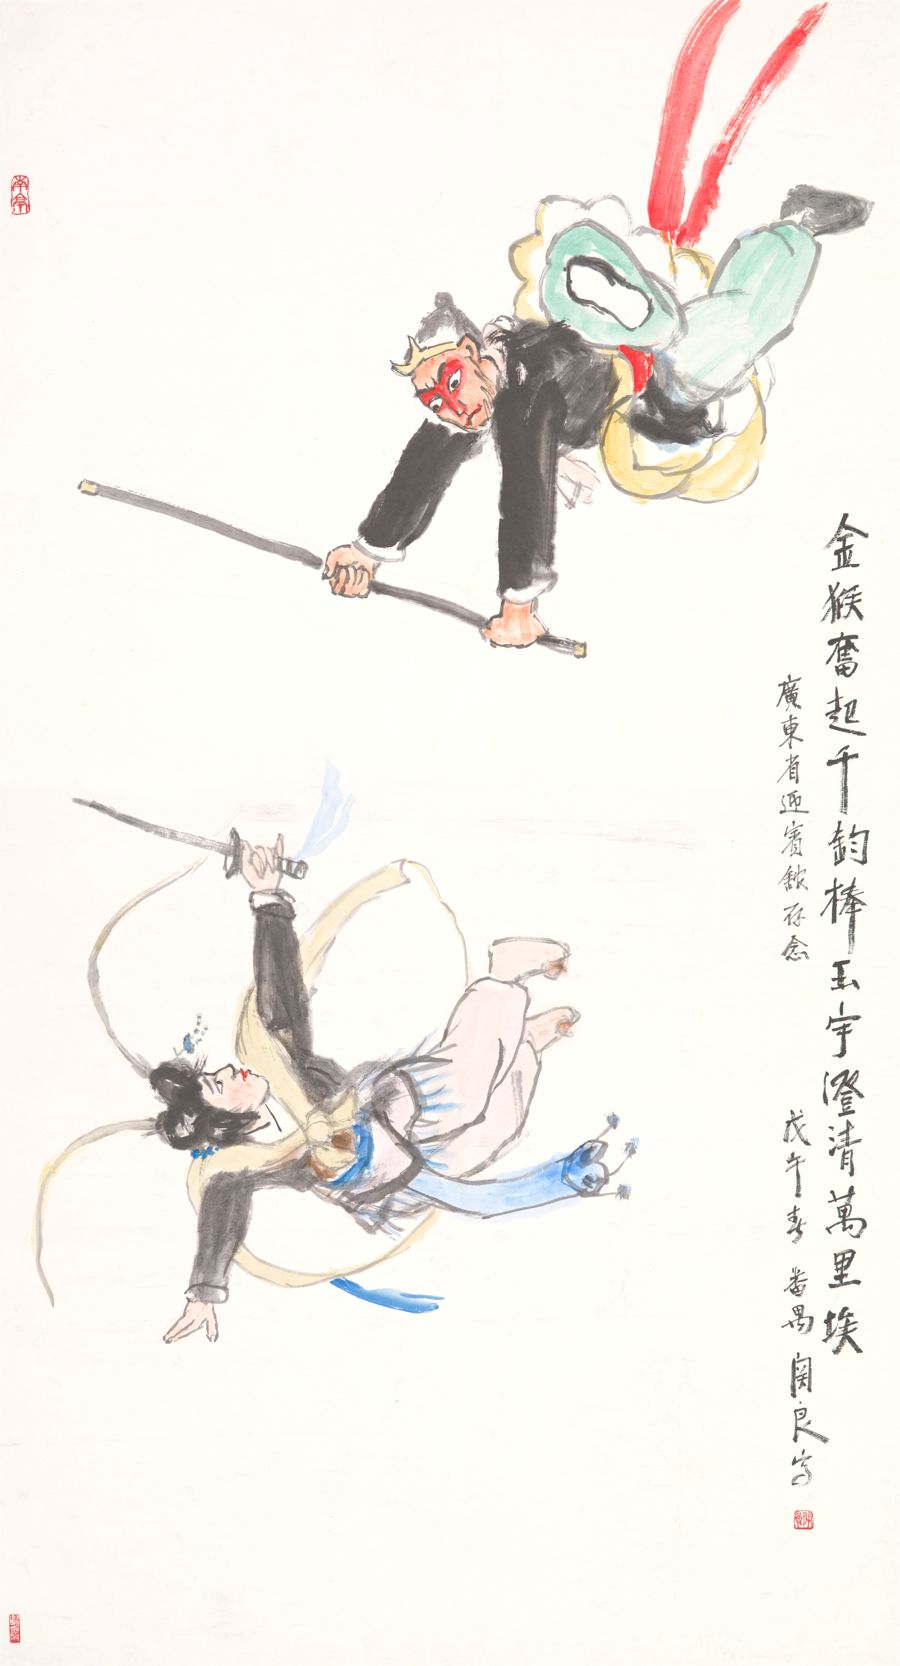 金猴奮起千鈞棒玉宇澄清萬里埃
廣東省迎賓館存念
戊午春 番禺 關良寫
南亭